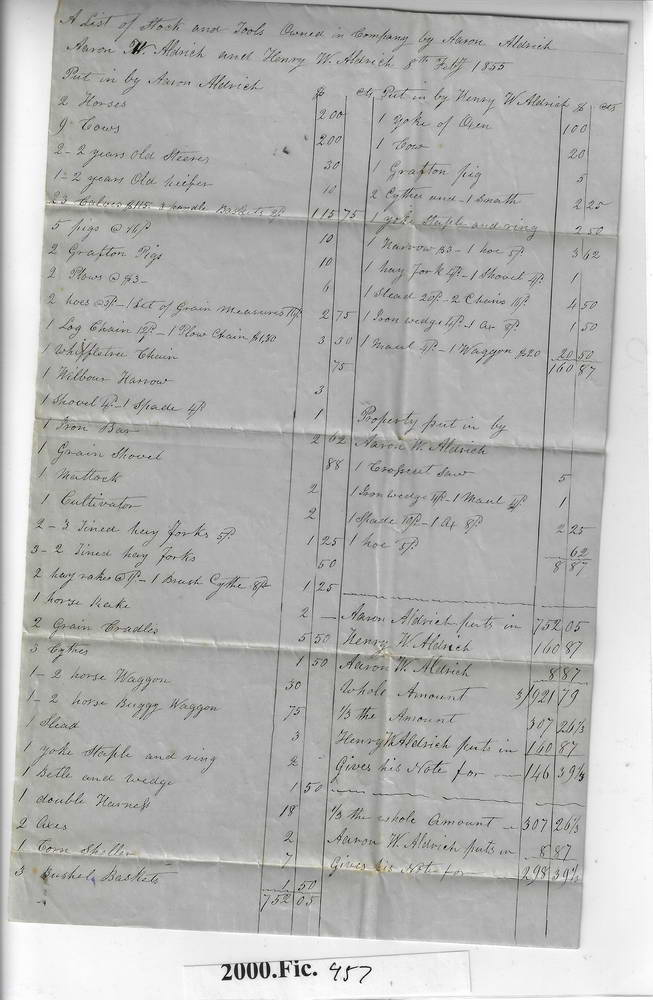 A List of Stock and Tools Owned in Company by Aaron Aldrich
Aaron W. Aldrich and Henry W. Aldrich 8th Feby 1855
Put in by Aaron Aldrich $ cts
2 Horses 200
9 Cows 200
2-2 years Old Steers 30
1-2 years Old heifer 10
23 Calves $115 3 handle Baskets 115 75
5 pigs @ 16/ 10
2 Grafton Pigs 10
2 Plows @ $3- 6
2 hoes @ 5/ - 1 Set of Grain measures 2 75
1 Log Chain 12/ - 1 Plow Chain $1,80 3 30
1 Whiffletree Chain 75
1 Wilbour Harrow 3
1 Shovel 4/ - 1 Spade 4/ 1
1 Iron Bar 2 62
1 Grain Shovel 88
1 Mattock 2
1 Cultivator 2
2-3 Tined hay forks 5/ 1 25
3-2 Tined hay forks 50
2 hay rakes @ - 1 Brush Cythe 8/ 1 25
1 horse Rake 2 -
2 Grain Cradles 5 50
3 Cythes 1 50
1-2 horse Waggon 30
1-2 horse Buggy Waggon 75
1 Slead 3
1 yoke Staple and ring 2 -
1 Betle and wedge 1 50
1 double Harness 18
2 Axes 2
1 Corn Sheller 7
3 Bushel Baskets 1 50
752 05
Put in by Henry W Aldrich $ cts
1 yoke of Oxen 100
1 Cow 20
1 Grafton pig 5
2 Cythes and 1 Snath 2 25
1 yoke Staple and ring 2 50
1 Harrow $3 - 1 hoe 5/ 3 62
1 hay fork 4/ - 1 Shovel 4/ 1
1 Slead 20/ - 2 Chains 4 50
1 Iron wedge - 1 Ax 8/ 1 50
1 Maul 4/ - 1 Waggon $20 20 50
160 87
Property put in by
Aaron W. Aldrich
1 Crosscut Saw 5
1 Iron wedge 4/ - 1 Maul 4/ 1
1 Spade 10/ - 1 Ax 8/ 2 25
1 hoe 5/ 62
8 87
Aaron Aldrich puts in 752 05
Henry W Aldrich 160 87
Aaron W. Aldrich 8 87
Whole Amount 3/921 79
1/3 the Amount 307 26 1/3
Henry W Aldrich puts in 160 87
Gives his Note for 146 39 1/3
1/3 the whole Amount 307 26 1/3
Aaron W. Aldrich puts in 8 87
Gives his Note for 298 39 1/3
2000.Fic. 457